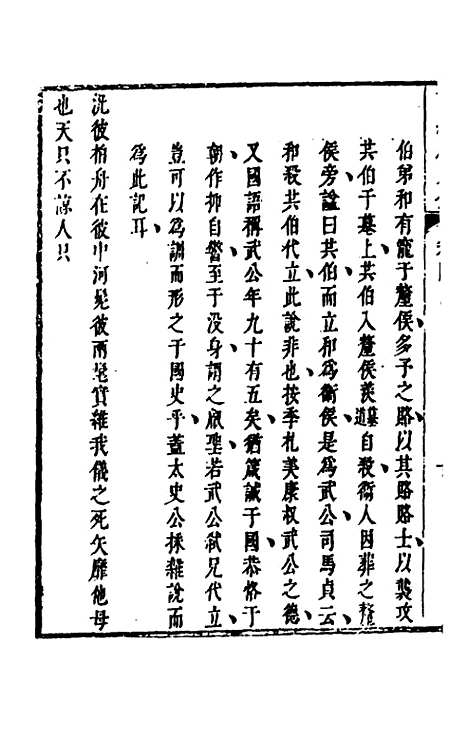 伯弟和有寵于釐侯多予之賂以其賂賂士以襲攻
共伯于墓上共伯入釐侯羨墓道自殺衛人因葬之釐
侯旁諡曰共伯而立和爲衛侯是爲武公司馬貞云
和殺共伯代立此說非也按季札美康叔武公之德
又國語稱武公年九十有五矣猶箴誡于國恭恪于
朝作抑自警至于没身謂之叡聖若武公弑兄代立
豈可以爲訓而形之于國史乎蓋太史公採雜說而
爲此記耳
汎彼柏舟在彼中河髧彼兩髦實維我儀之死矢靡他母
也天只不諒人只